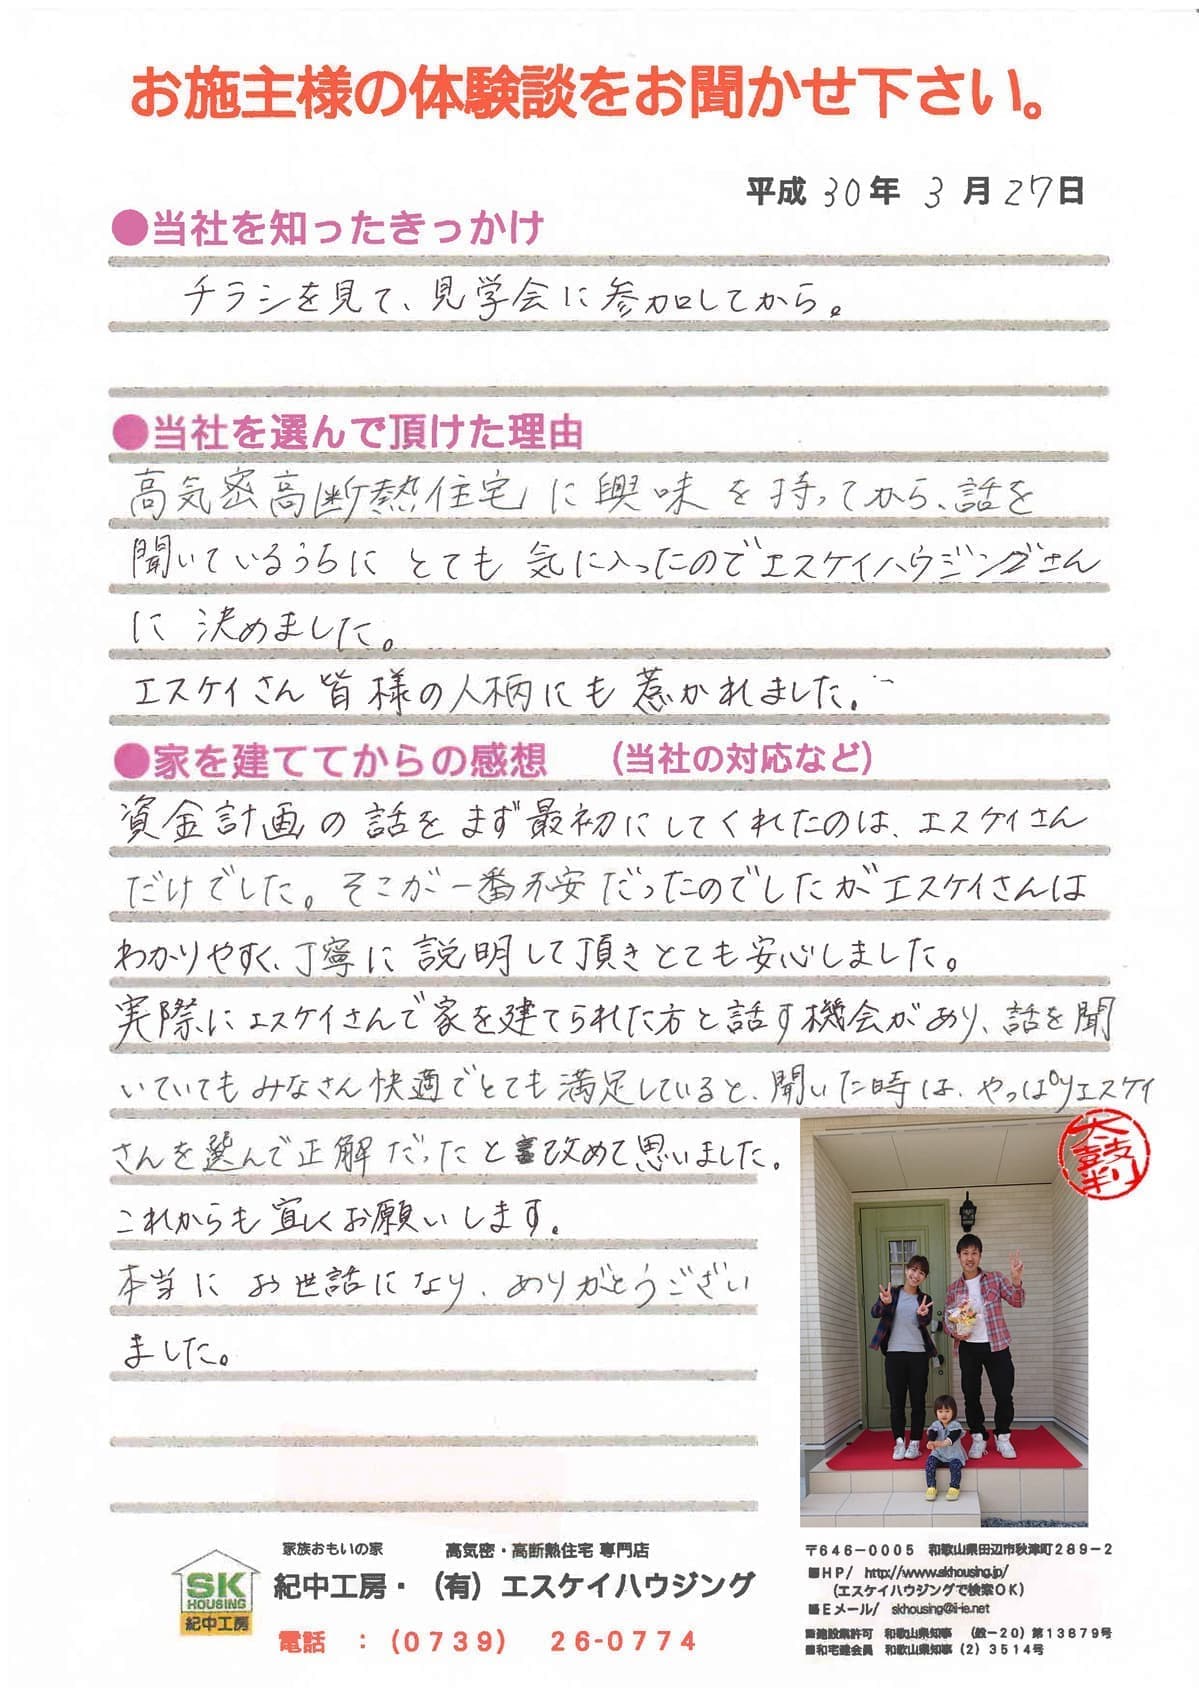 お施主様の体験談をお聞かせ下さい。
平成 30年 3月 27日
●当社を知ったきっかけ
チラシを見て、見学会に参加してから。
●当社を選んで頂けた理由
高気密高断熱住宅に興味を持ってから、話を
聞いているうちに とても 気に入ったのでエスケイハウジングさん
に 決めました。
エスケイさん皆様の人柄にも惹かれました。
●家を建ててからの感想 (当社の対応など)
資金計画の話をまず最初にしてくれたのは、エスケイさん
だけでした。そこが一番不安だったのでしたがエスケイさんは
わかりやすく、丁寧に説明して頂きとても安心しました。
実際にエスケイさんで家を建てられた方と話す機会があり、話を聞
いていてもみなさん快適でとても満足していると、聞いた時は、やっぱりエスケイ
さんを選んで正解だったと改めて思いました。
これからも宜しくお願いします。
本当に お世話になり、ありがとうござい
ました。
太鼓判
SK
HOUSING
紀中工房
家族おもいの家 高気密・高断熱住宅 専門店
紀中工房・(有)エスケイハウジング
電話 :(0739) 26-0774
〒646-0005 和歌山県田辺市秋津町289-2
■HP/ http://www.skhousing.jp/
(エスケイハウジングで検索OK)
■Eメール/ skhousing@ii-ie.net
■建設業許可 和歌山県知事 (般-20)第13879号
■和宅建会員 和歌山県知事(2)3514号